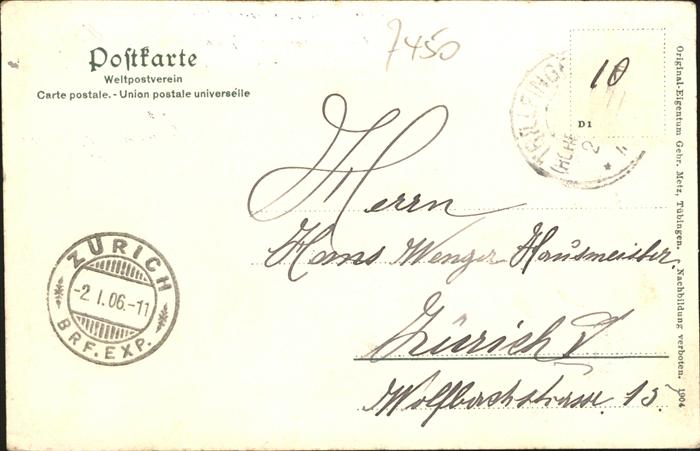 7450
Postkarte
Weltpostverein
Carte postale. - Union postale universelle
10
D1
ZÜRICH
-2.I.06.-11
BRF.EXP.
Herrn
Hans Wenger Hausmeister,
Zürich V
Wolfbachstrasse 13.
Original-Eigentum Gebr. Metz, Tübingen. Nachbildung verboten. 1904